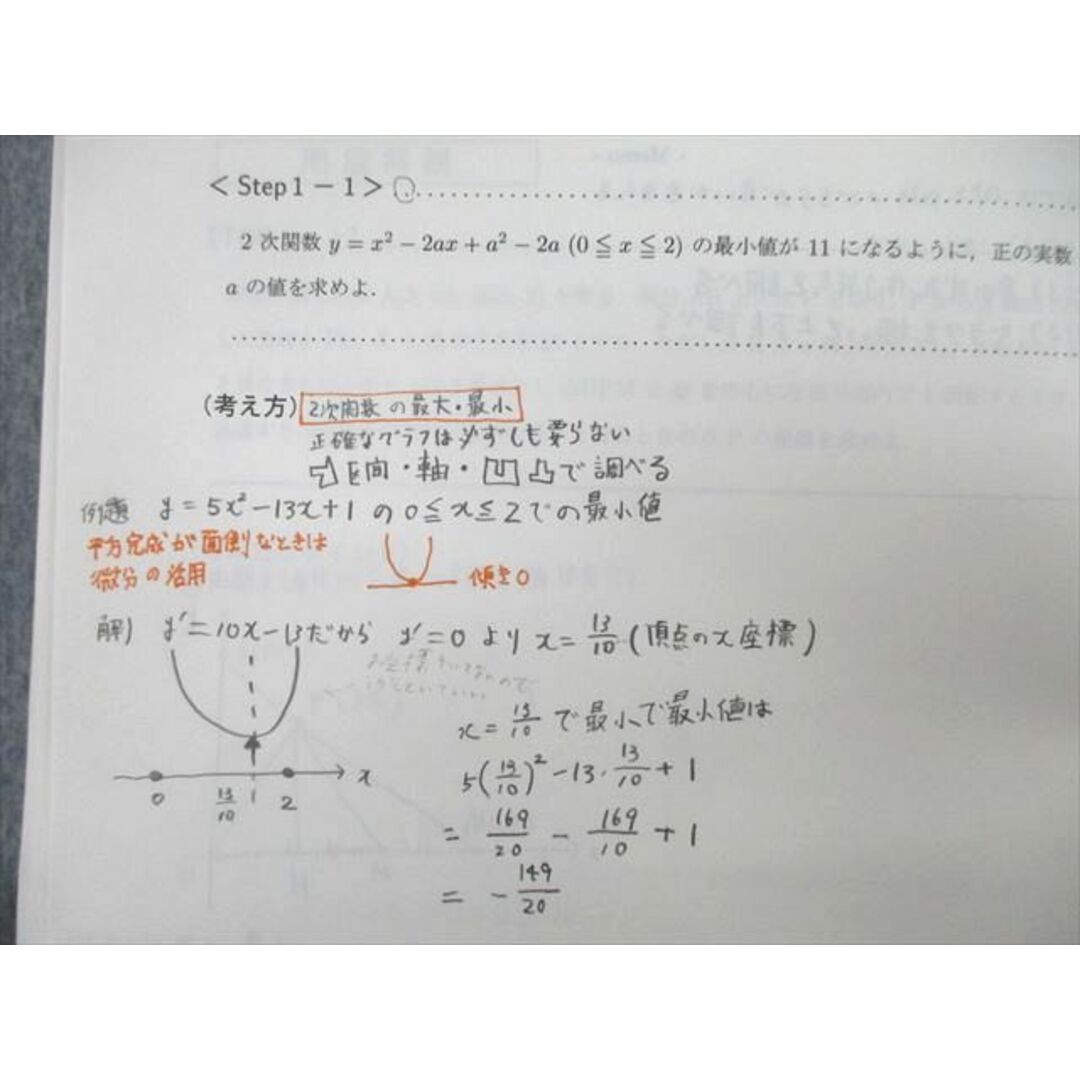 < Step 1 − 1 >
2 次関数 y = x² − 2ax + a² − 2a (0 ≦ x ≦ 2) の最小値が 11 になるように, 正の実数
a の値を求めよ.
(考え方) 2次関数 の 最大・最小
正確なグラフは必ずしも要らない
区間・軸・凹凸で調べる
例題 y = 5x² − 13x + 1 の 0 ≦ x ≦ 2 での最小値
平方完成が面倒なときは
微分の活用
傾き0
解) y' = 10x − 13 だから y' = 0 より x = 13/10 (頂点のx座標)
x = 13/10 で最小で最小値は
5(13/10)² − 13・13/10 + 1
0 13/10 1 2 x
= 169/20 − 169/10 + 1
= − 149/20